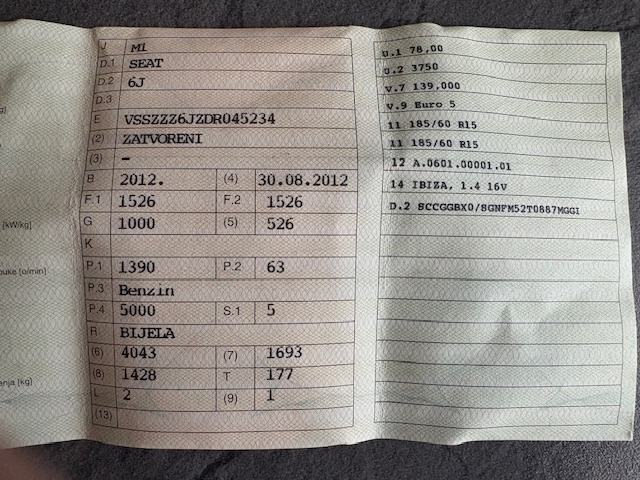 J M1
D.1 SEAT
D.2 6J
D.3
E VSSZZZ6JZDR045234
(2) ZATVORENI
(3) -
B 2012. (4) 30.08.2012
F.1 1526 F.2 1526
G 1000 (5) 526
K
P.1 1390 P.2 63
P.3 Benzin
P.4 5000 S.1 5
R BIJELA
(6) 4043 (7) 1693
(8) 1428 T 177
L 2 (9) 1
(13)
g]
[kW/kg]
uke [o/min]
enja [kg]
U.1 78,00
U.2 3750
V.7 139,000
V.9 Euro 5
11 185/60 R15
11 185/60 R15
12 A.0601.00001.01
14 IBIZA, 1.4 16V
D.2 SCCGGBX0/SGNFM52T0887MGGI